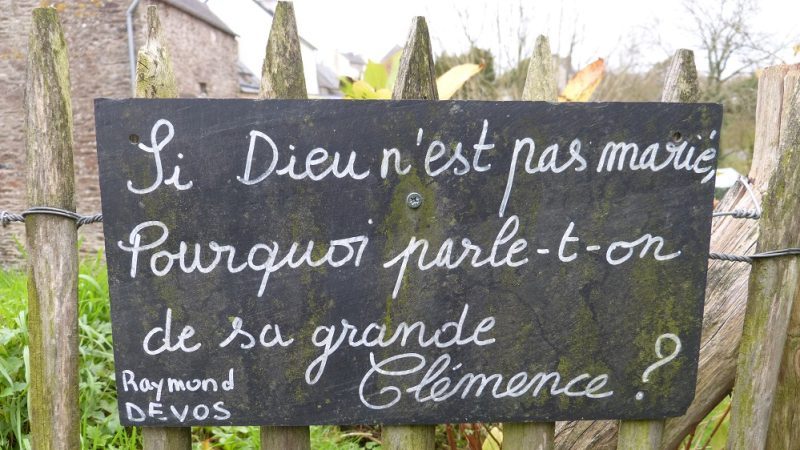 Si Dieu n'est pas marié,
Pourquoi parle-t-on
de sa grande
Clémence ?
Raymond
DEVOS